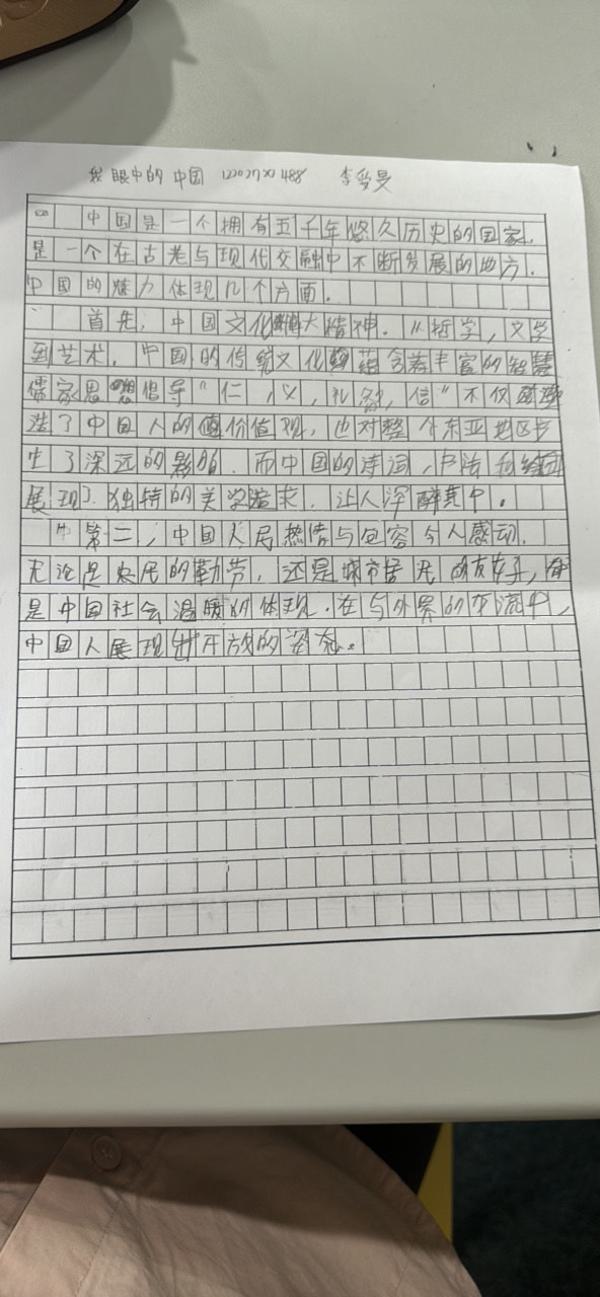 我眼中的中国
中国是一个拥有五千年悠久历史的国家,
是一个在古老与现代交融中不断发展的地方.
中国的魅力体现几个方面.
首先,中国文化博大精神.从哲学,文学
到艺术.中国的传统文化蕴含着丰富的智慧
儒家思想倡导“仁,义,礼,智,信”不仅塑
造了中国人的价值观,也对整个东亚地区产
生了深远的影响.而中国的诗词,书法和绘画
展现了独特的美学追求.让人深醉其中.
第二,中国人民热情与包容令人感动.
无论是农民的勤劳,还是城市居民的友好,都
是中国社会温暖的体现.在与外界的交流中,
中国人展现出开放的姿态.